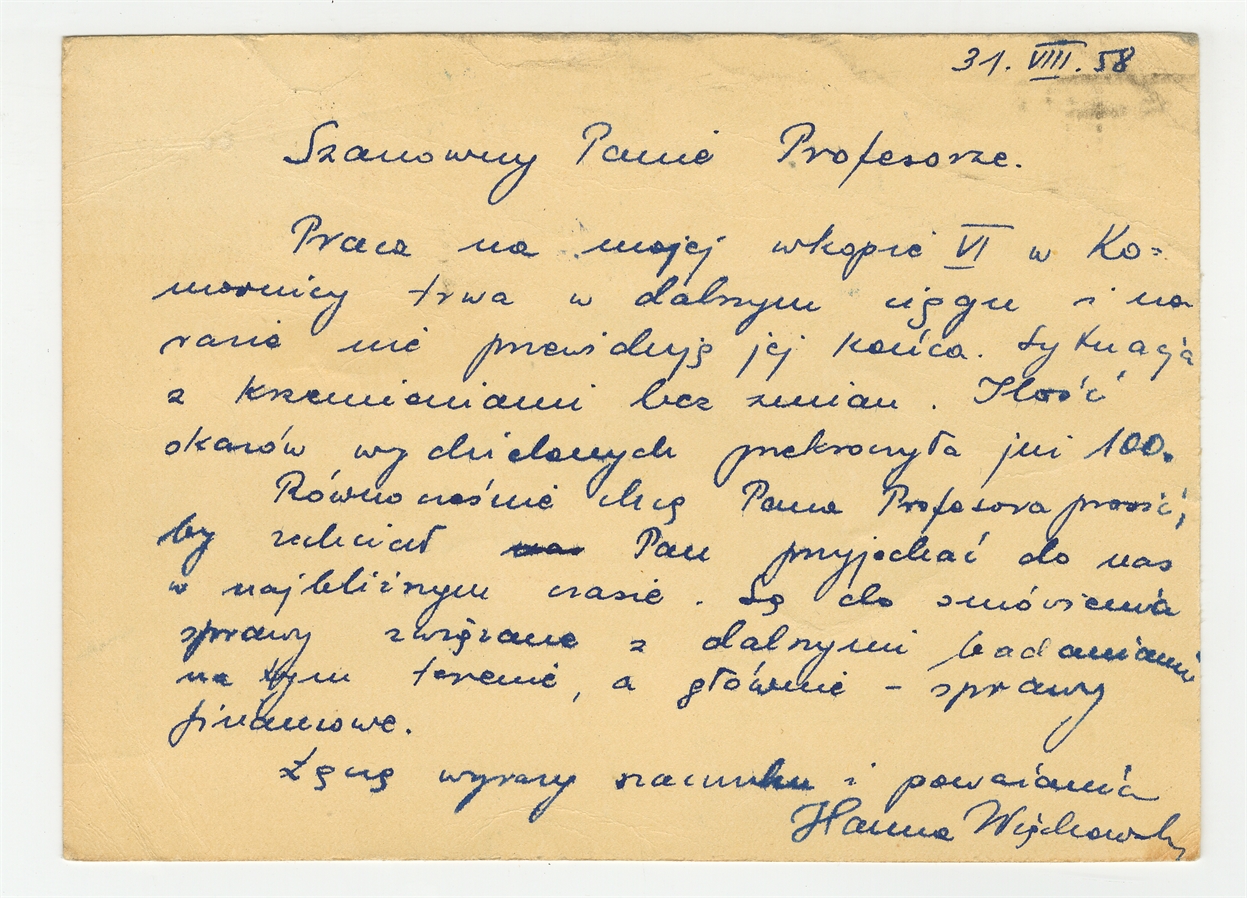 31. VIII. 58
Szanowny Panie Profesorze.
Praca na mojej wkopie VI w Ko=
mornicy trwa w dalszym ciągu i na
razie nie przewiduję jej końca. Sytuacja
z krzemieniami bez zmian. Ilość
okazów wydzielonych przekroczyła już 100.
Równocześnie chcę Pana Profesora prosić,
by zechciał na Pan przyjechać do nas
w najbliższym czasie. Są do omówienia
sprawy związane z dalszymi badaniami
na tym terenie, a głównie - sprawy
finansowe.
Łączę wyrazy szacunku i poważania
Hanna Więckowska